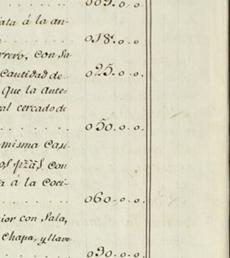 ata á la an-
018.. o.. o
rrero, con Sa
cantidad de 025.. o.. o.
que la ante-
al cercado de
050.. o.. o.
misma Casi-
os pizas con
a á la Coci-
060.. o.. o.
ior con Sala,
Chapa, y llave
030.. o.. o.